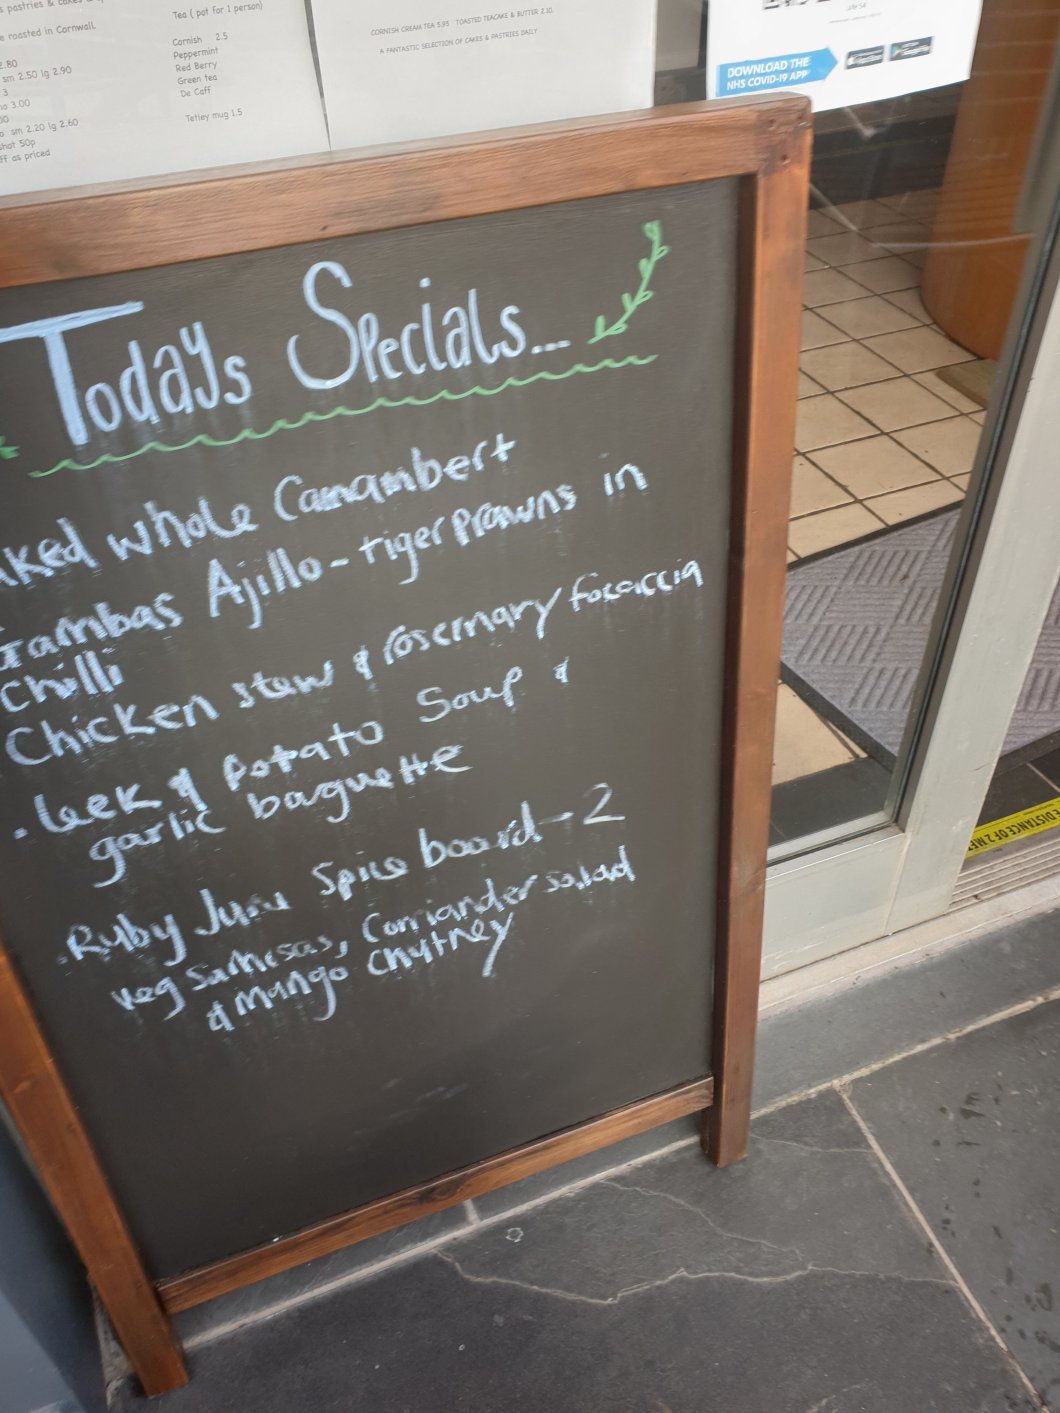 pastries & cakes
e roasted in Cornwall.
2.80
sm 2.50 lg 2.90
3
no 3.00
00
o sm 2.20 lg 2.60
shot 50p
ff as priced
Tea ( pot for 1 person)
Cornish 2.5
Peppermint
Red Berry
Green tea
De Caff
Tetley mug 1.5
CORNISH CREAM TEA 5.95 TOASTED TEACAKE & BUTTER 2.10.
A FANTASTIC SELECTION OF CAKES & PASTRIES DAILY
DOWNLOAD THE
NHS COVID-19 APP
Todays Specials...
aked whole Camambert
Gambas Ajillo - tiger prawns in
Chilli
Chicken stew & rosemary focaccia
. leek & Potato Soup &
garlic baguette
. Ruby Juru Spice board - 2
veg samosas, Corriander salad
& Mango Chutney
E DISTANCE OF 2 ME